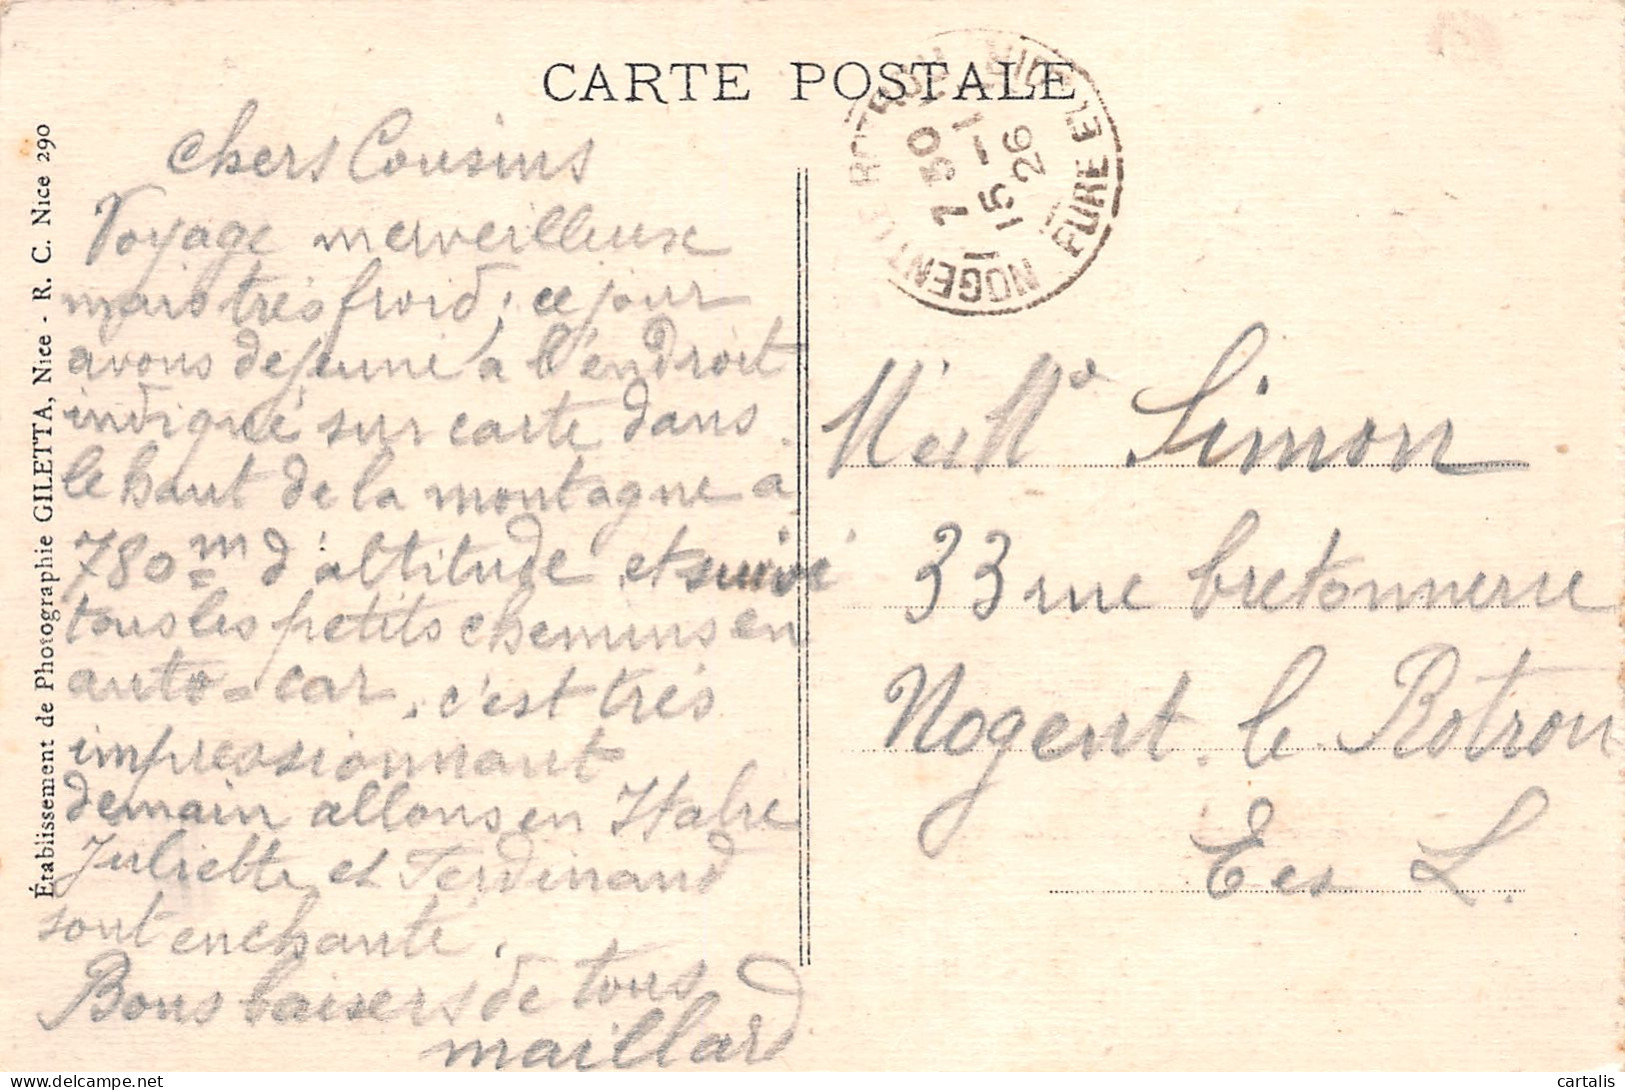 CARTE POSTALE
NOGENT LE ROTROU
EURE ET
7 30
15 - 1
26
Établissement de Photographie GILETTA, Nice - R. C. Nice 290
chers Cousins
Voyage merveilleuse
mais très froid, ce jour
avons dejeuné a l'endroit
indiqué sur carte dans
le haut de la montagne a
780m d'altitude et suivi
tous les petits chemins en
auto=car, c'est très
impressionnant
demain allons en Italie
Juliette et Ferdinand
sont enchanté.
Bons baisers de tous
maillard
M et Me Simon
33 rue bretonnerie
Nogent le Rotrou
E et L.
cartalis